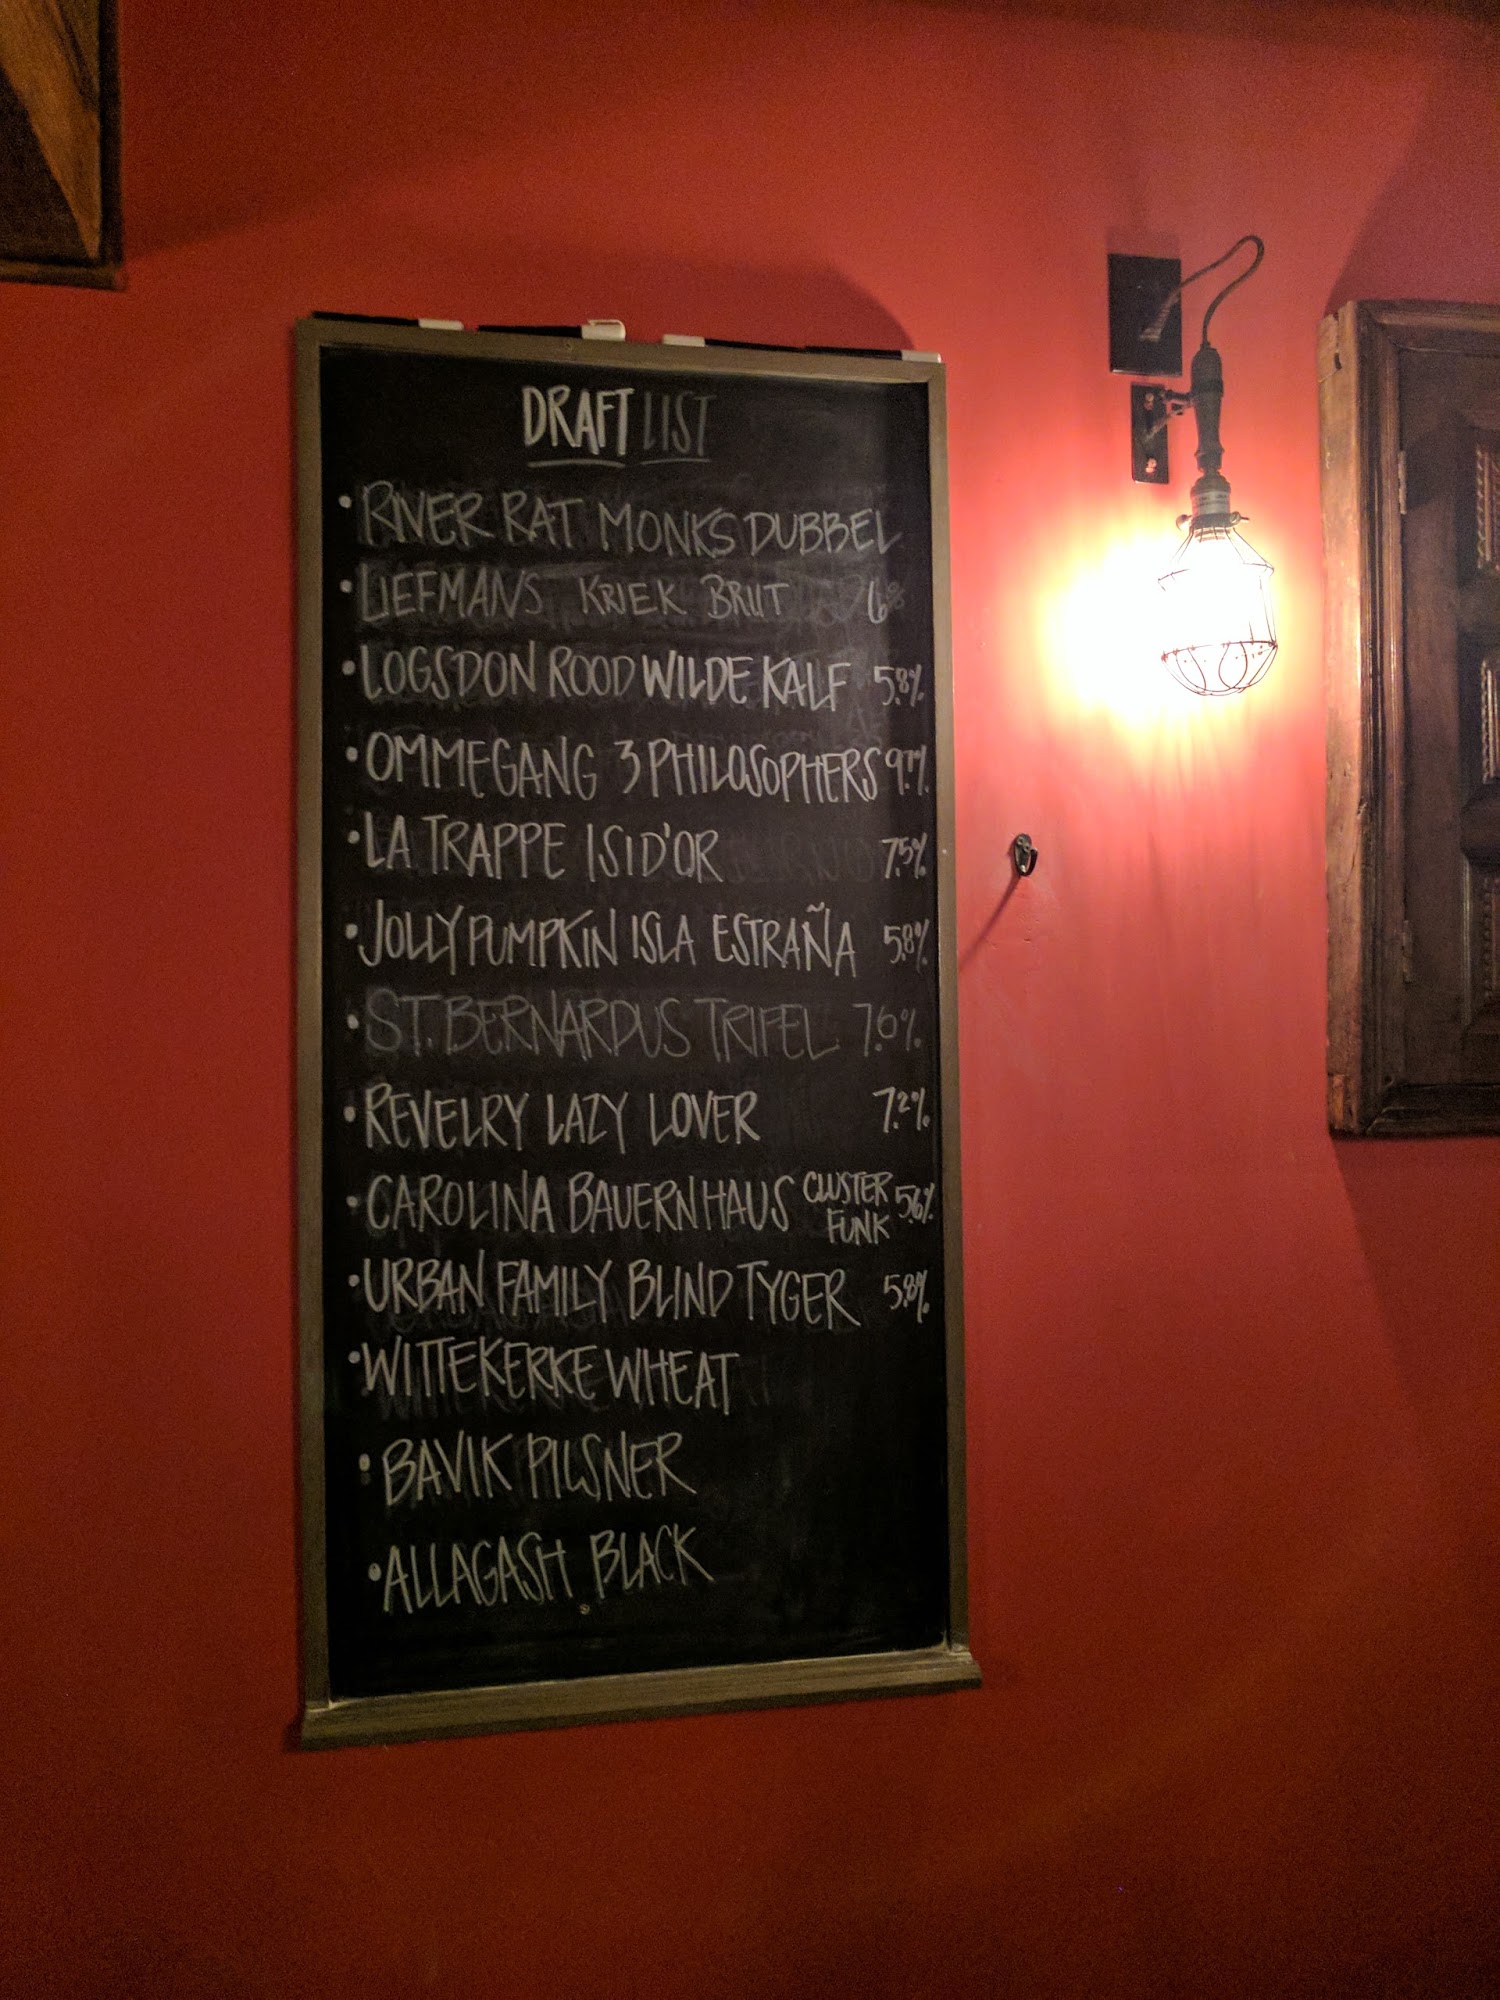 DRAFT LIST
• RIVER RAT MONKS DUBBEL
• LIEFMANS KRIEK BRUT 6%
• LOGSDON ROOD WILDE KALF 5.8%
• OMMEGANG 3 PHILOSOPHERS 9.7%
• LA TRAPPE ISID'OR 7.5%
• JOLLY PUMPKIN ISLA ESTRAÑA 5.8%
• ST. BERNARDUS TRIPEL 7.6%
• REVELRY LAZY LOVER 7.2%
• CAROLINA BAUERNHAUS CLUSTER FUNK 5.6%
• URBAN FAMILY BLIND TYGER 5.8%
• WITTEKERKE WHEAT
• BAVIK PILSNER
• ALLAGASH BLACK